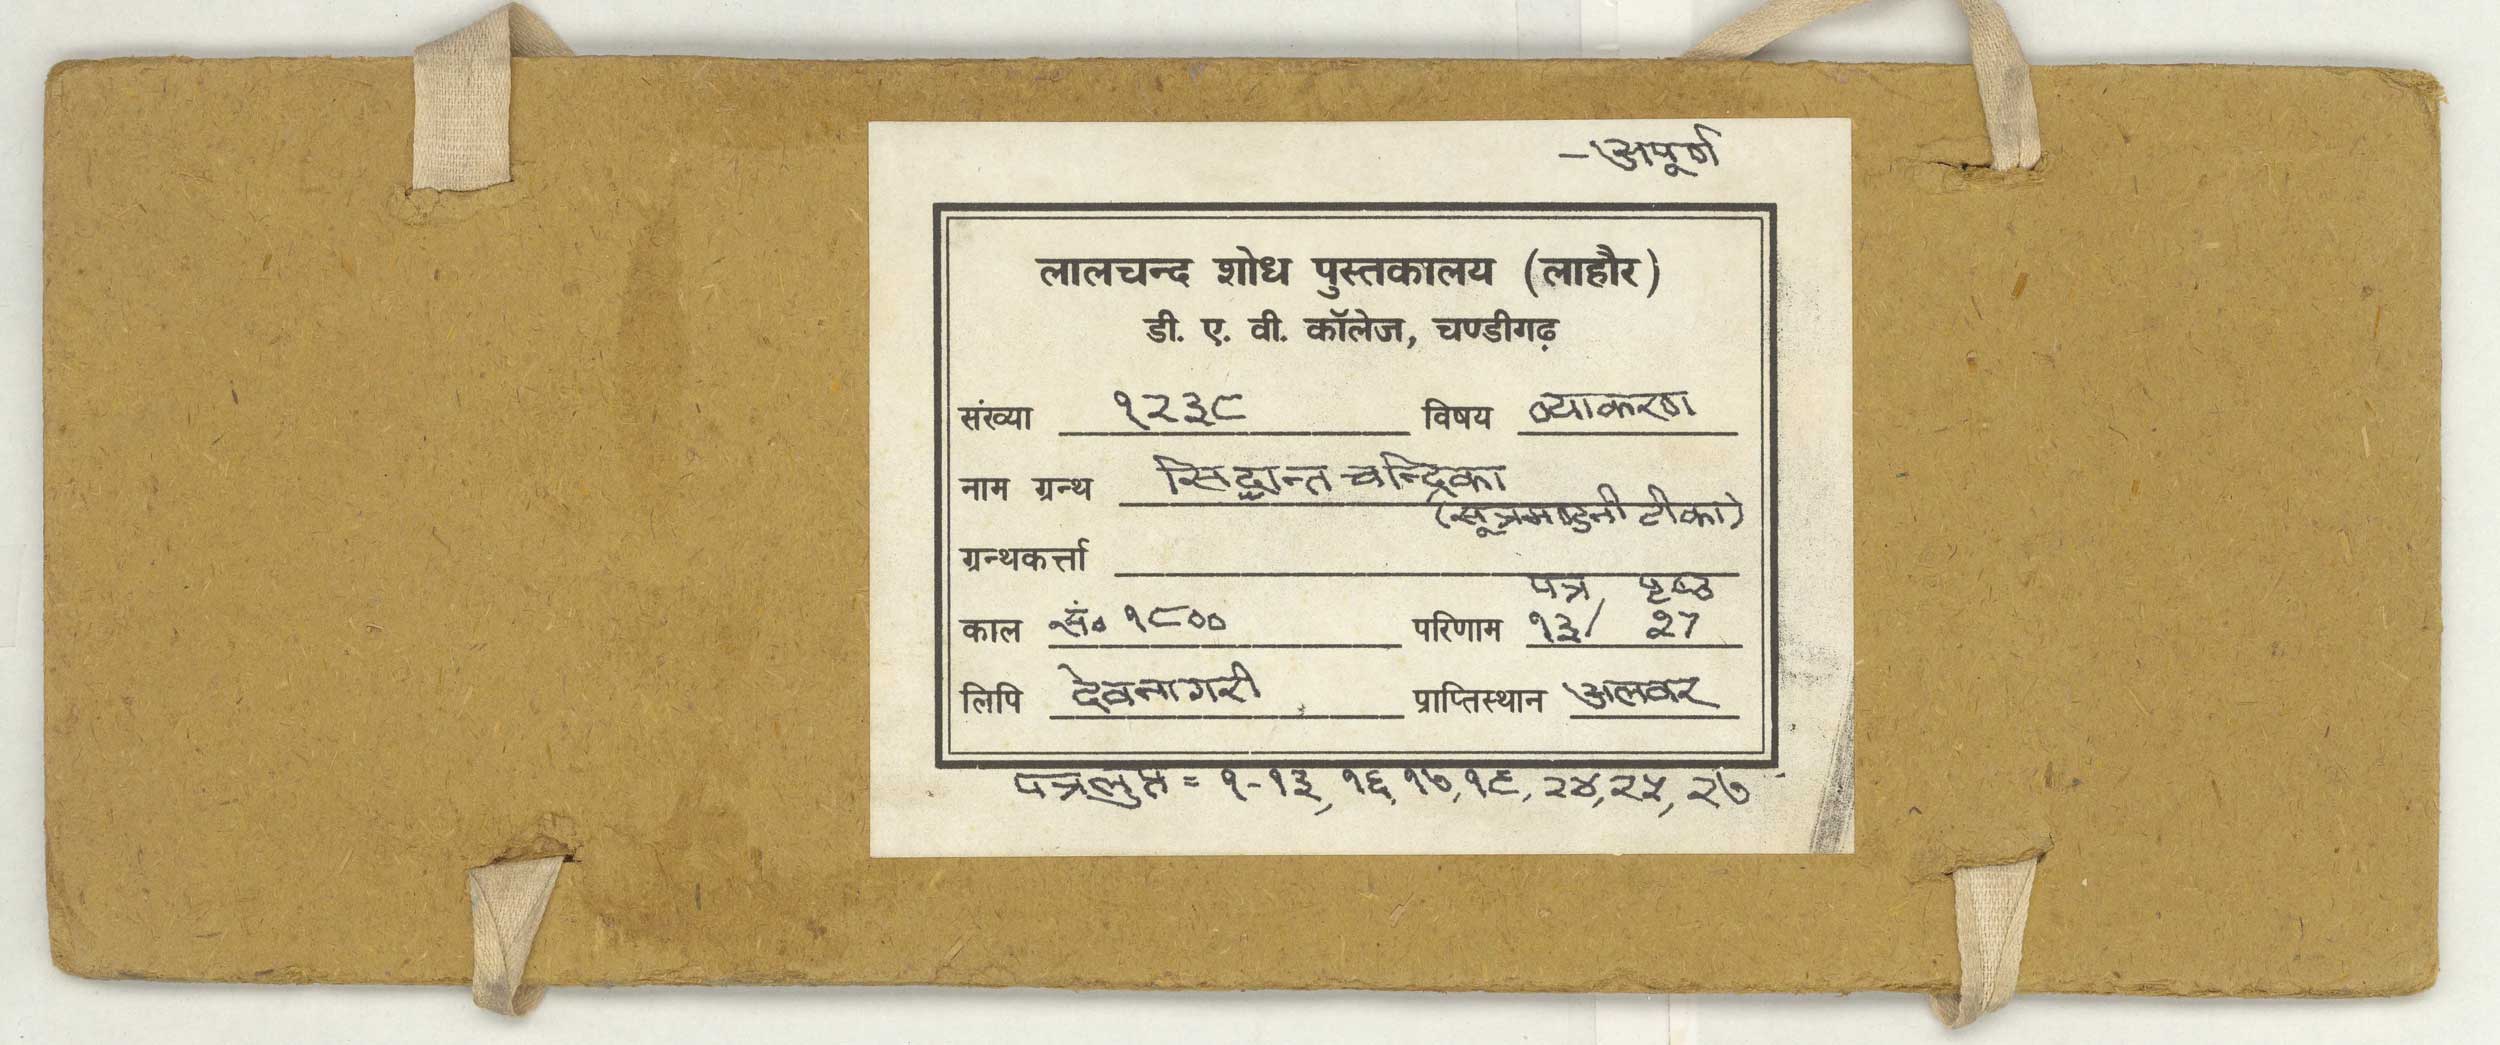 -अपूर्ण
लालचन्द शोध पुस्तकालय (लाहौर)
डी. ए. वी. कॉलेज, चण्डीगढ़
संख्या १२३८ विषय व्याकरण
नाम ग्रन्थ सिद्धान्त चन्द्रिका
(सूत्रमण्डनी टीका)
ग्रन्थकर्त्ता
पत्र पृष्ठ
काल सं० १८०० परिणाम १३/ २7
लिपि देवनागरी प्राप्तिस्थान अलवर
पत्रलुप्त = १-१३, १६, १७, १९, २४, २५, २७